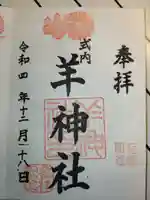 奉拝
式内
羊神社
令和四年十二月二十八日